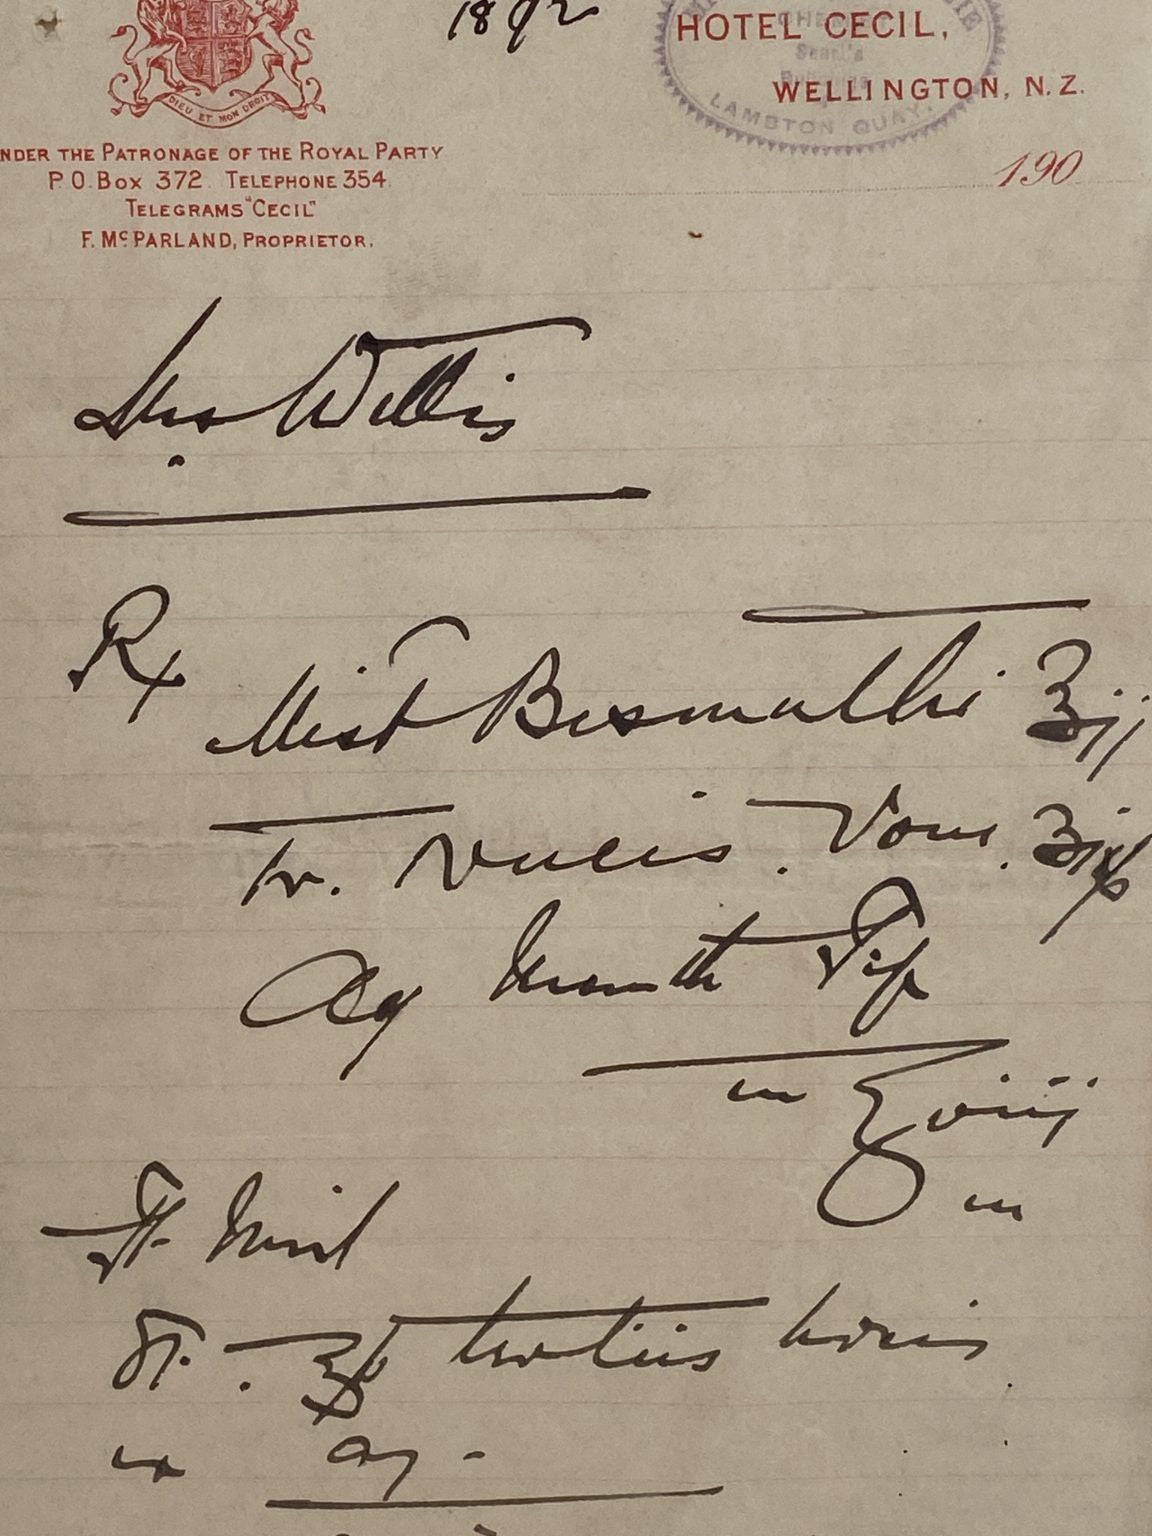 1892
HOTEL CECIL,
WELLINGTON, N. Z.
LAMBTON QUAY.
DIEU ET MON DROIT
NDER THE PATRONAGE OF THE ROYAL PARTY
P.O. Box 372. TELEPHONE 354
TELEGRAMS "CECIL"
F. McPARLAND, PROPRIETOR.
190
Mrs Willis
Rx
Mist Bismuthi ʒij
Tr. Nucis. Vom. ʒiss
Aq Menth Pip
ad ℥viij
Ft. Mist
ʒss tertiis horis
ex aq.